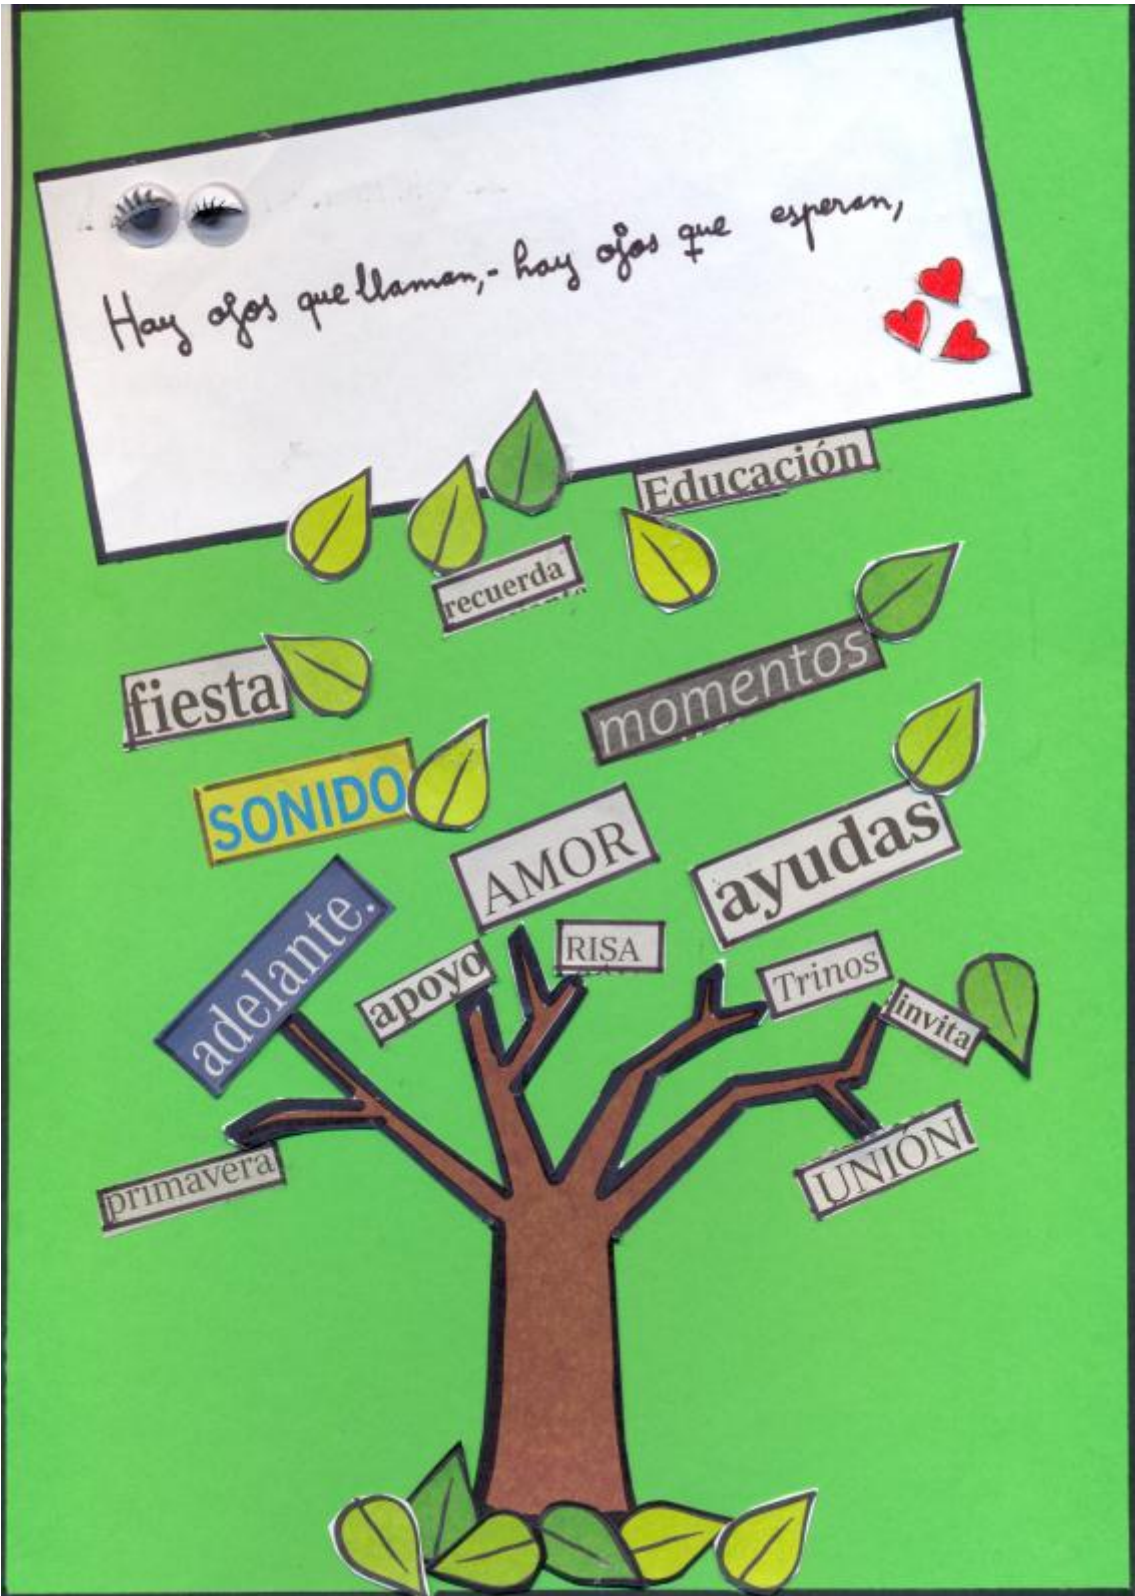 Hay ojos que llaman,- hay ojos que esperan,
Educación
recuerda
fiesta
momentos
SONIDO
AMOR
ayudas
adelante.
apoyo
RISA
Trinos
invita
primavera
UNIÓN